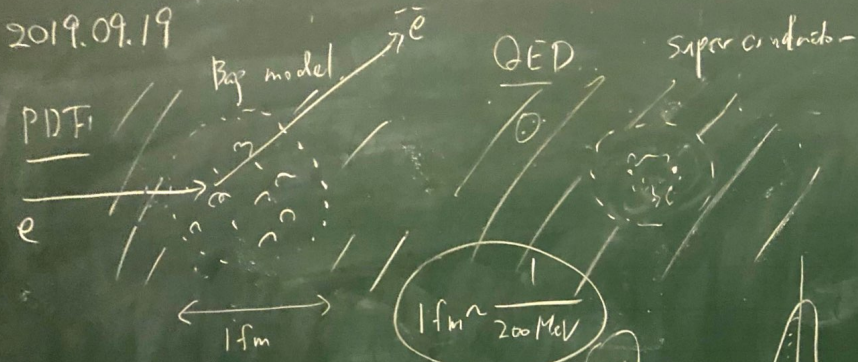 2019.09.19
Bag model
e
QED
Superconductor
PDF
e
1 fm
1 fm ~ 1/200 MeV